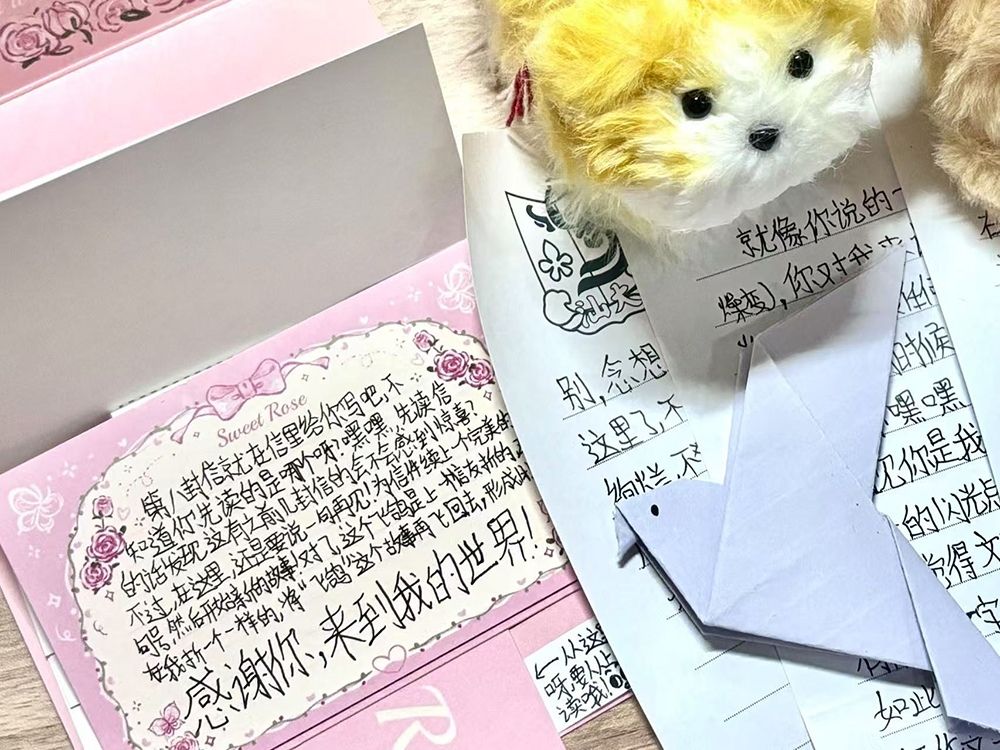 Sweet Rose
第八封信就在信里给你写吧,不
知道你先读的是哪个呀?嘿嘿,先读信
的话发现这有之前几封信的会不会感到惊喜?
不过,在这里,还是要说一句再见!为信件续上一个完美的
句号,然后开始新的故事又打了,这个飞鸽是上
在我折一个一样的,将“飞鸽”这个故事再飞回去,形成
感谢你,来到我的世界!
←从这
呀,要从
读哦!
R
汕大
别,念想
这里了,不
绚烂,不
就像你说的一
燥变),你对
任何
时候
嘿嘿
见你是我
的闪光点
觉得文
字
如此